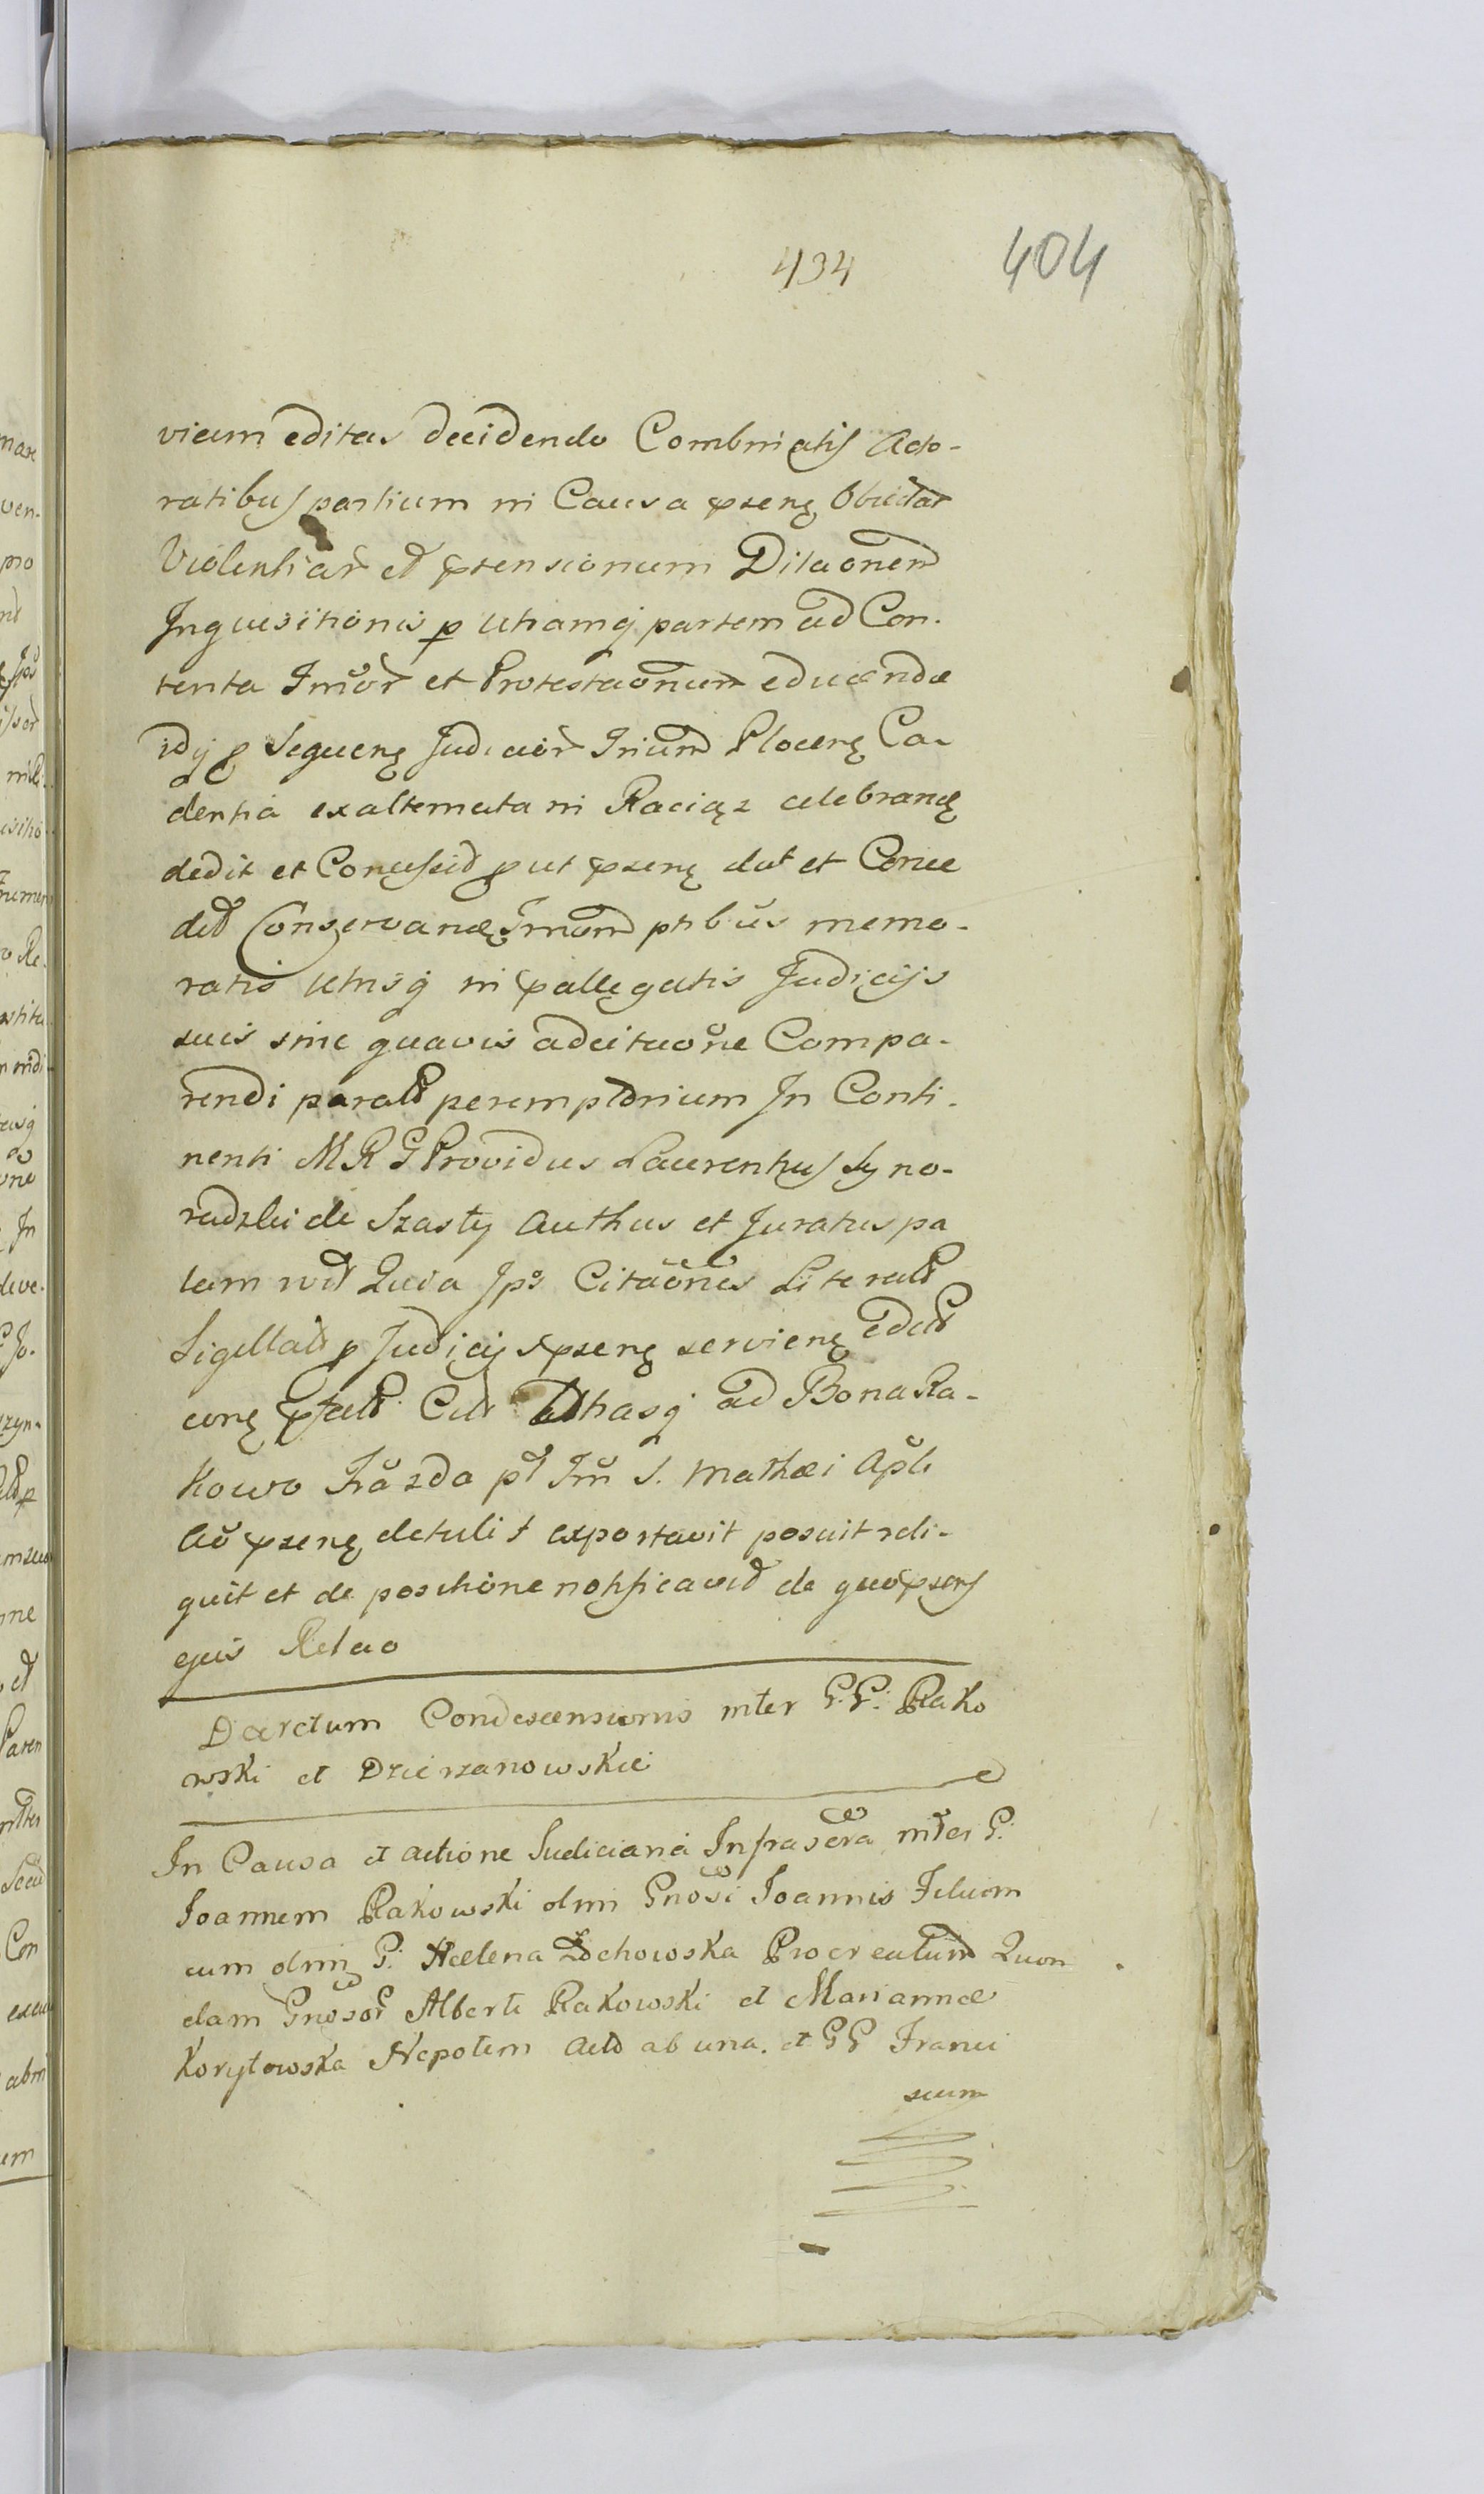 434
404
vicem editas decidendo Combinatis Acto-
ratibus partium in Causa pxsenę Obuictar
Violentiar et pxtensionum Dilaonem
Inquisitionis p utramq partem ad Con-
tenta Imor et Protestaonum educendæ
idq p Sequenę Judicior Trium Plocenę Ca-
dentia exalternata in Raciąz celebrandę
dedit et Concessid put pxsenę dat et Conce
dit Conservanę Trmum ptibus memo-
ratis utrisq in pallegatis Judicijs
suis sine quavis adcitaone Compa-
rendi parat peremptorium In Conti-
nenti MRG Providus Laurentius Sy no-
radzki de Szasty authus et Juratus pa
lam Quia Jps Citaones Literat
Sigillat p Judicij spxsenę servienę edat
ad Bona Ra-
kowo Trazda pt Tm S. Mathæi Apli
Ao pxsenę detulit exportavit posuit reli-
quit et de positione notificavid de quo pxsens
ejus Relao
Decretum Condescensionis inter G.G. Rako
wski et Dzierzanowskie
In Causa et actione Judiciaria Infrascra inter G.
Joannem Rakowski olim Gnosi Joannis Filium
cum olim G. Helena Żochowska Procreatum Quon
dam Gnosor Alberti Rakowski et Mariannæ
Korytowska Nepotem act ab una. et GG Franci
scum